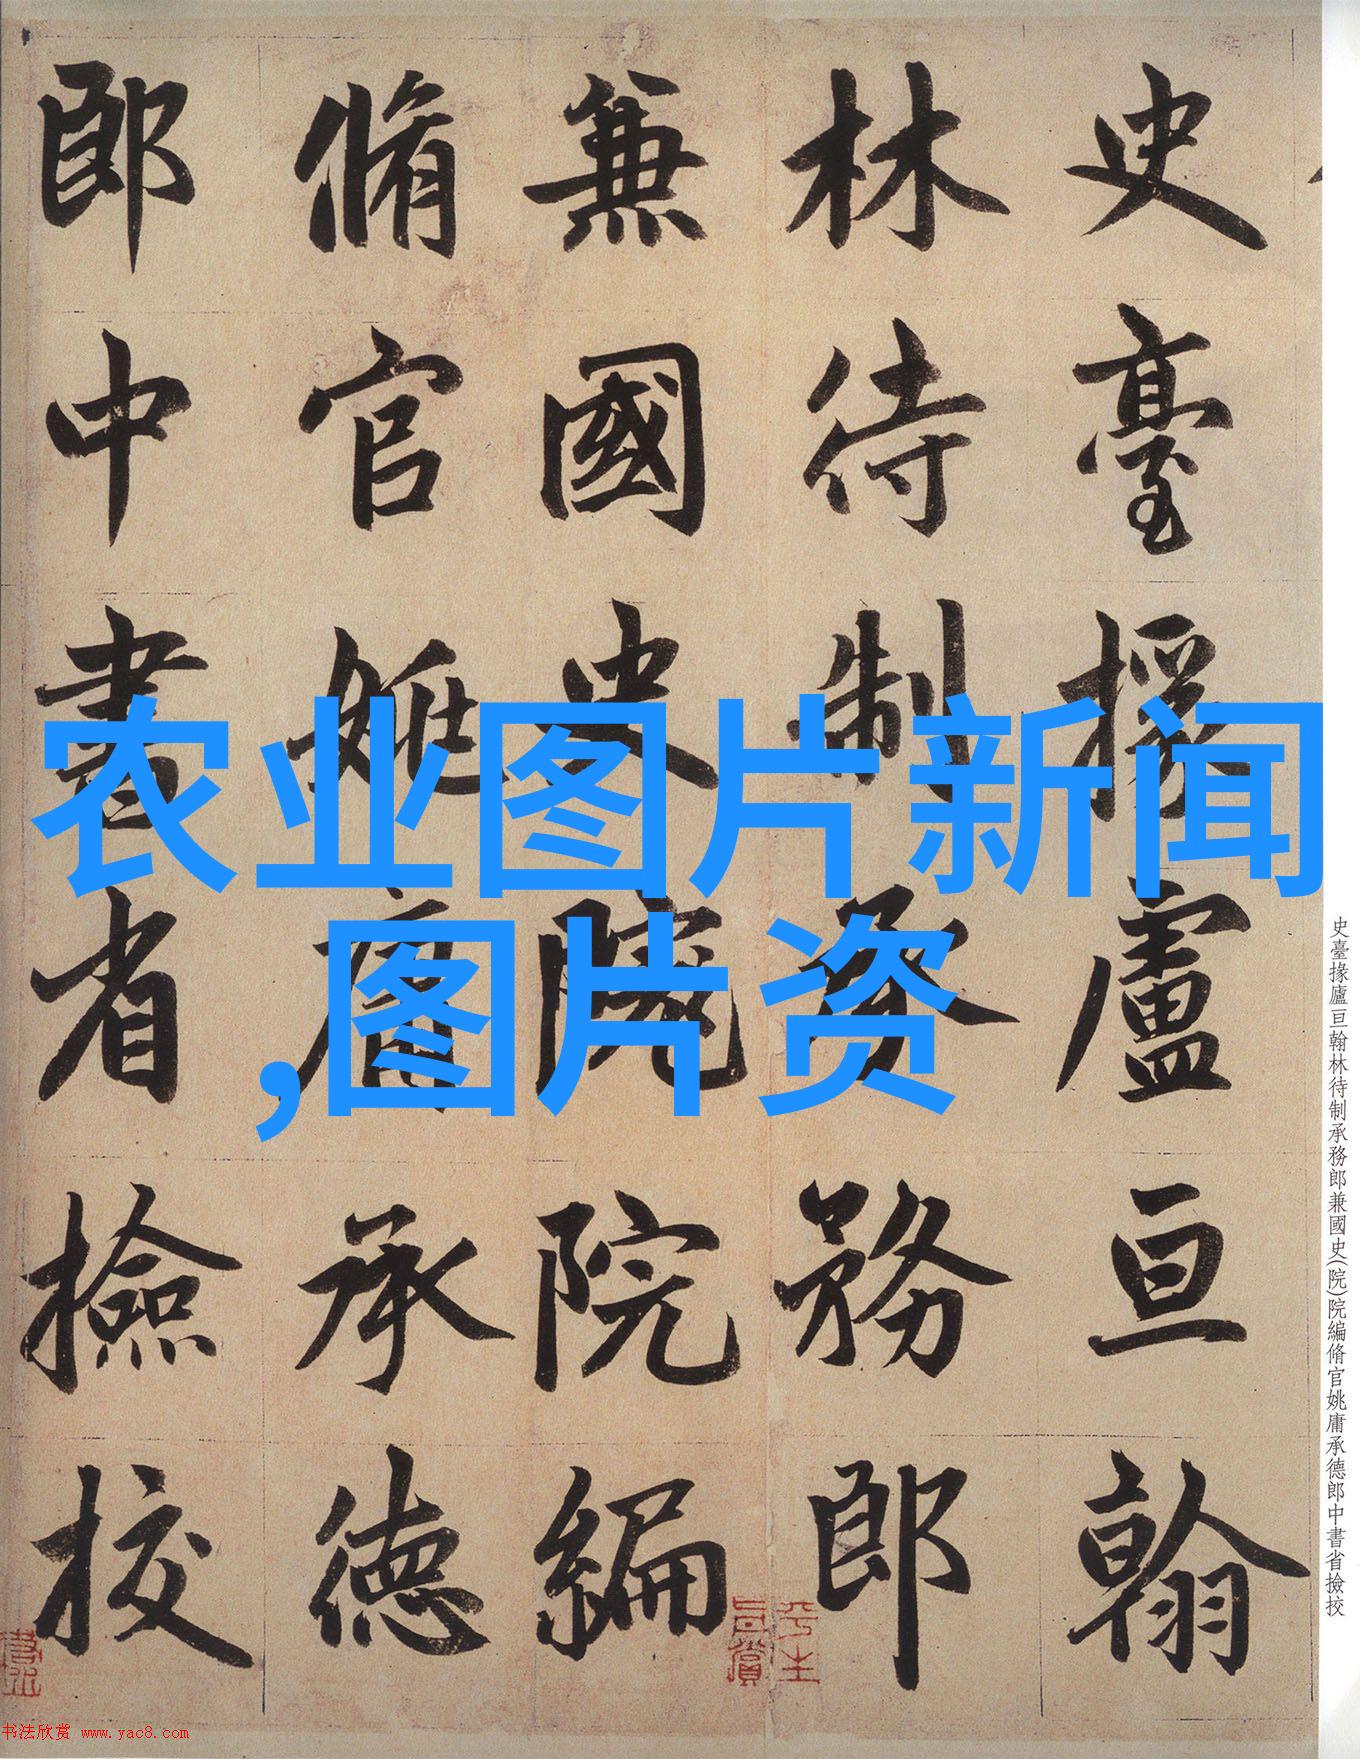 史臺掾盧亘翰
林待制承務郎
兼國史院院編
脩官姚庸承德
郎中書省撿挍
农业图片新闻
,图片资
史臺掾廬亘翰林待制承務郎兼國史(院)院編脩官姚庸承德郎中書省撿挍
平生
真賞
书法欣赏 www.yac8.com